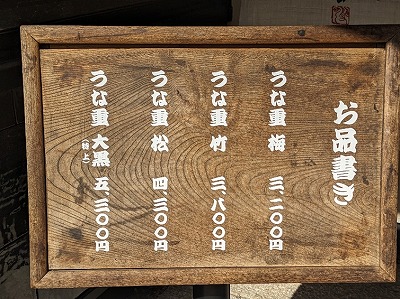 お品書き
うな重 梅 三、二〇〇円
うな重 竹 三、八〇〇円
うな重 松 四、三〇〇円
うな重 大黒(特上) 五、三〇〇円